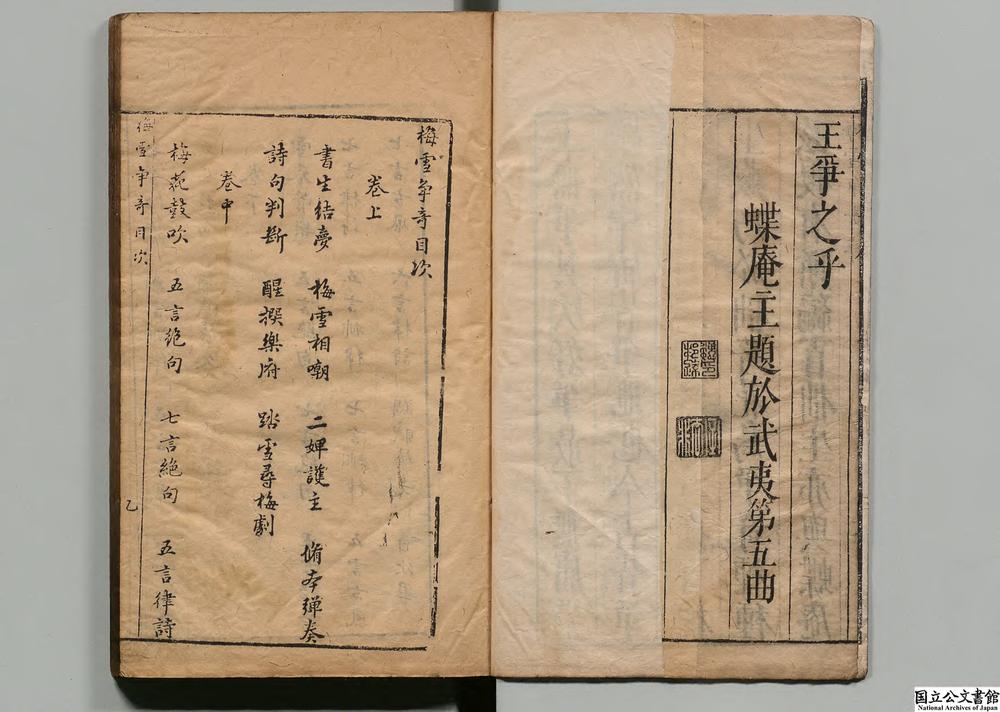 王爭之乎
蝶庵主題於武夷第五曲
梅雪爭奇目次
卷上
書生結夢 梅雪相嘲 二婢護主 脩本彈奏
詩句判斷 醒撰樂府 踏雪尋梅劇
卷中
梅花鼓吹 五言絶句 七言絶句 五言律詩
梅雪爭奇目次
乙
国立公文書館
National Archives of Japan